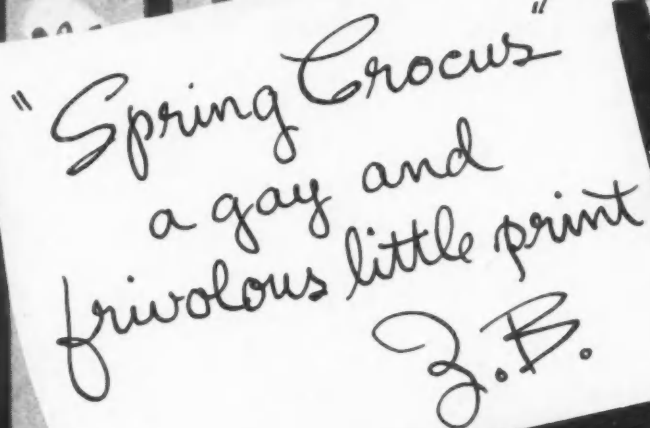 "Spring Crocus"
a gay and
frivolous little print
Z.B.